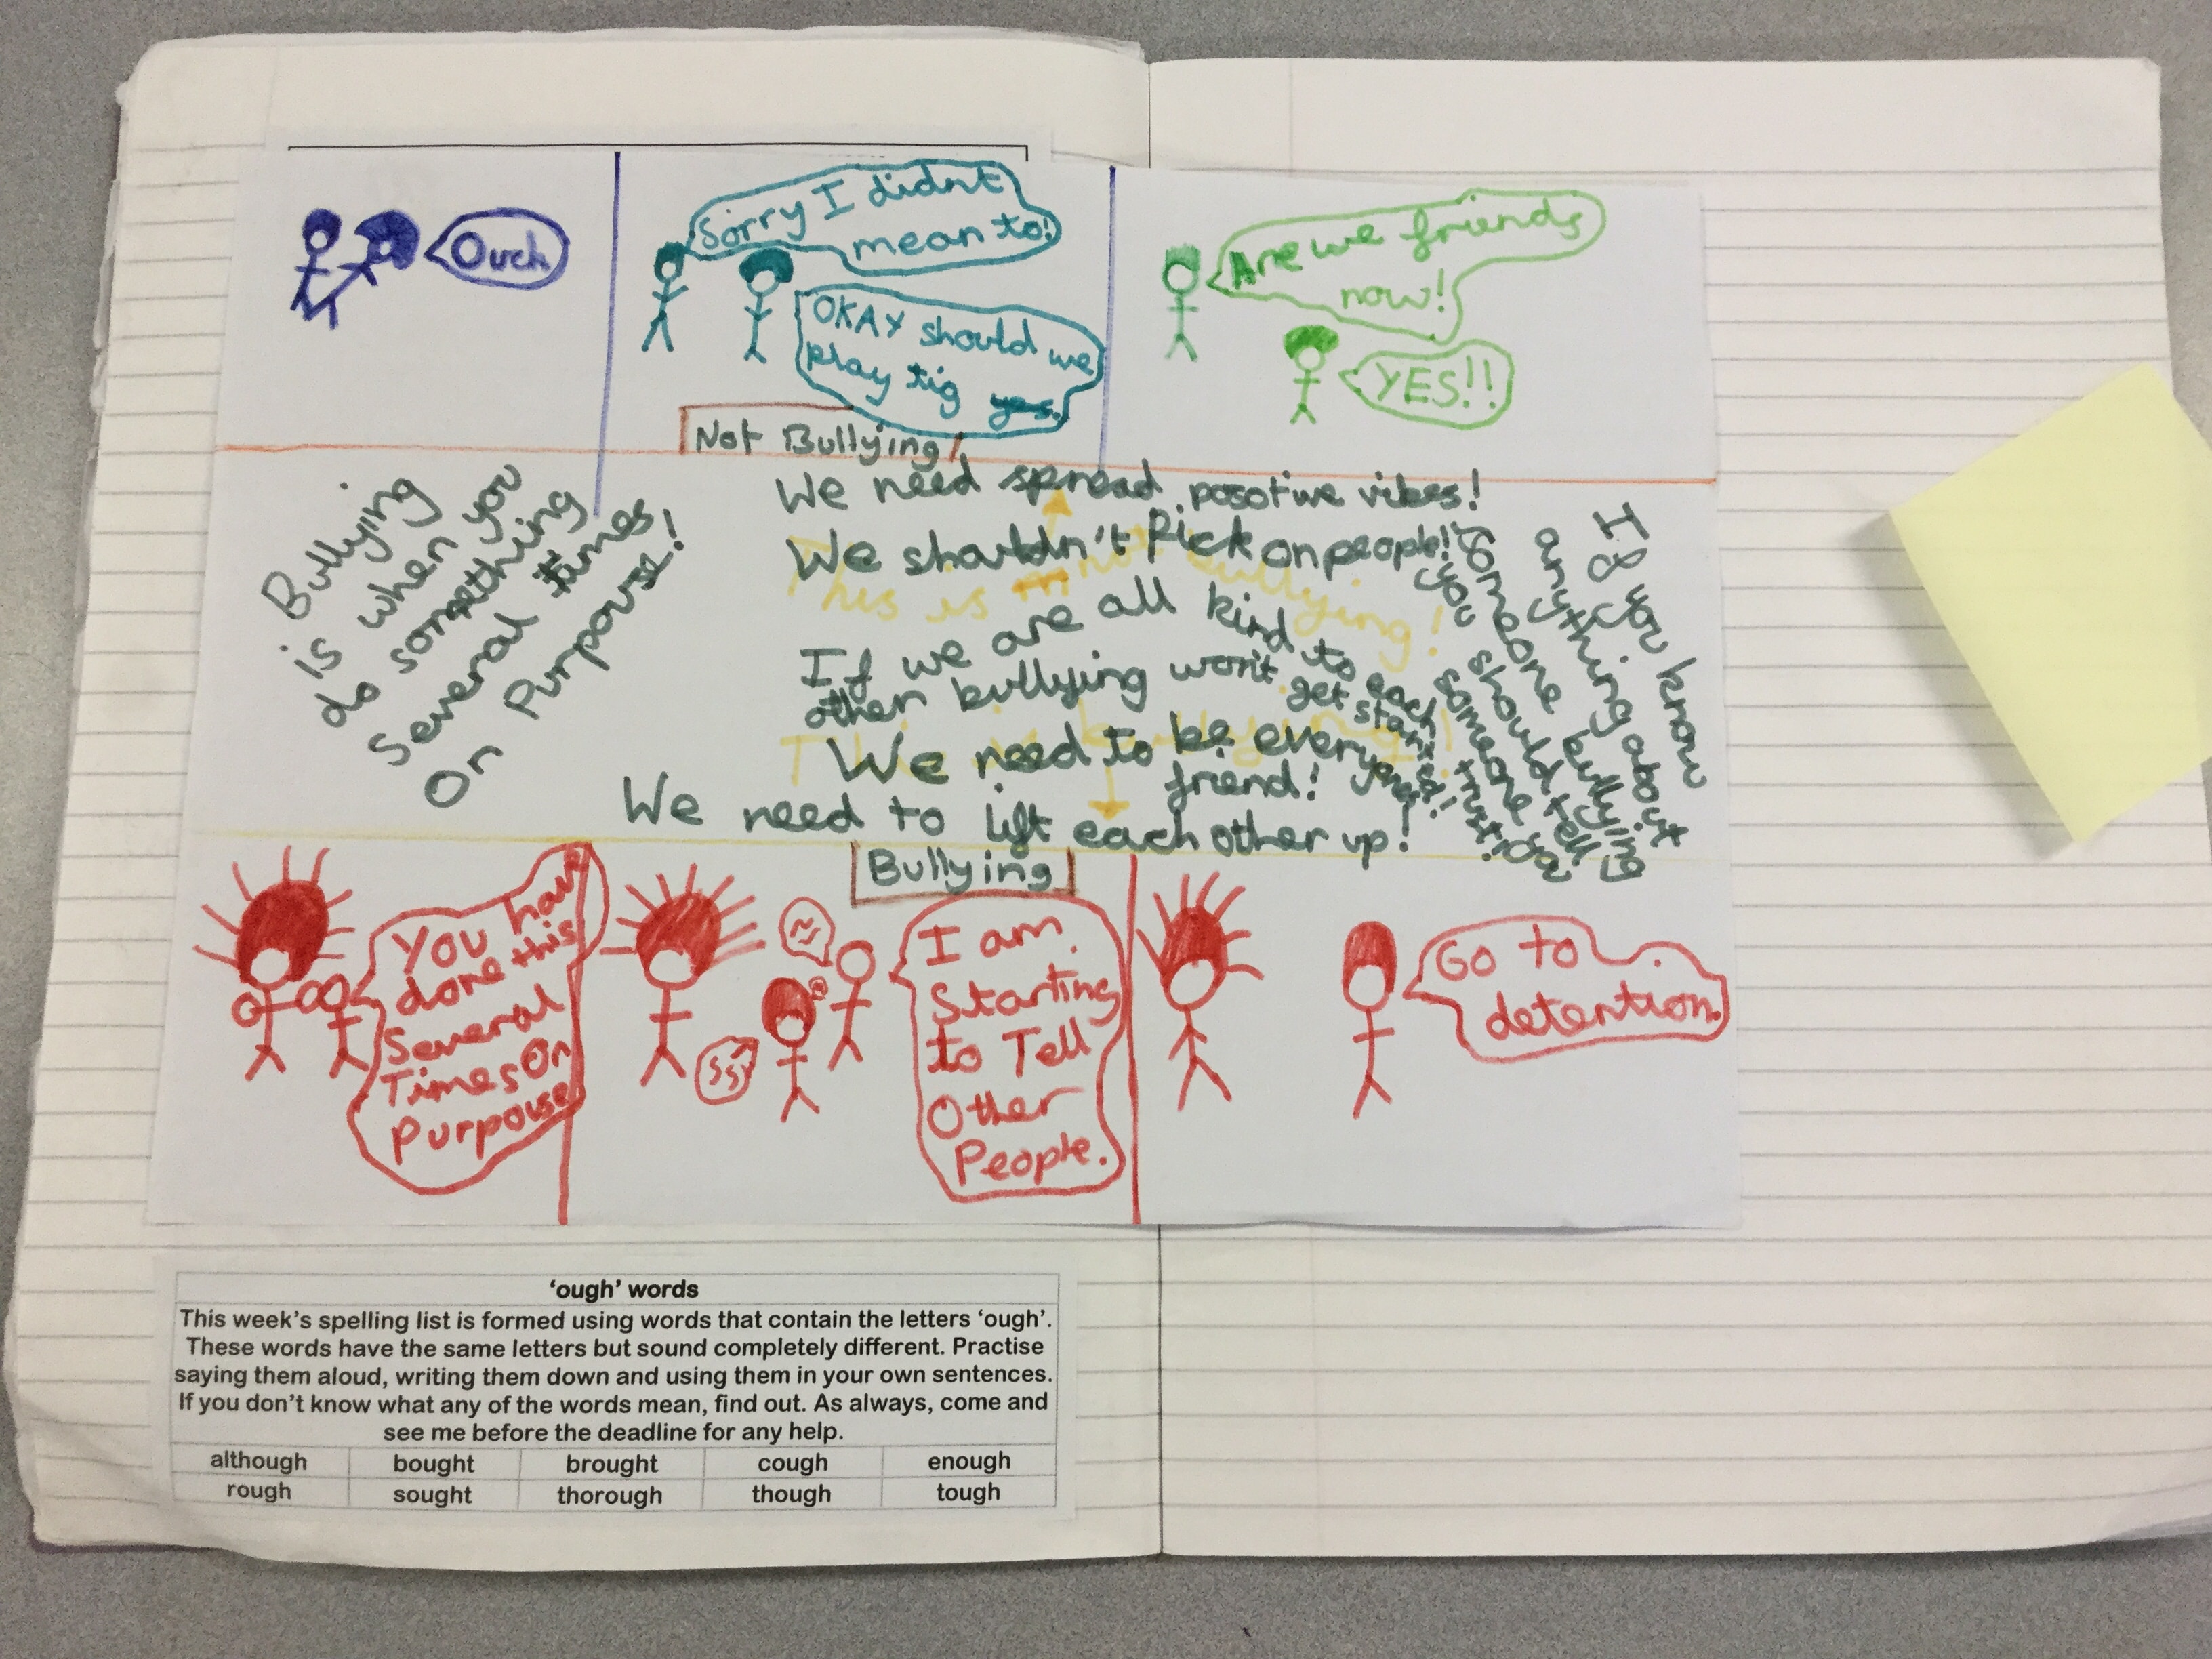 Ouch
Sorry I didnt
mean to!
OKAY should we
play tig yes.
Are we friends
now!
YES!!
Not Bullying!
Bullying
is when you
do somthing
Several times
On Purpouse!
We need spread posotive vibes!
We shouldn't Pick on people!
This is not bullying!
If we are all kind to each
other bullying won't get started!
We need to be every ones
friend!
We need to lift each other up!
If you know
anything about
someone bullying
you should tell
someone you
trust!
Bullying
You have
done this
Several
Times On
Purpouse
I am
Starting
to Tell
Other
People.
Go to
detention.
'ough' words
This week's spelling list is formed using words that contain the letters 'ough'.
These words have the same letters but sound completely different. Practise
saying them aloud, writing them down and using them in your own sentences.
If you don't know what any of the words mean, find out. As always, come and
see me before the deadline for any help.
although bought brought cough enough
rough sought thorough though tough